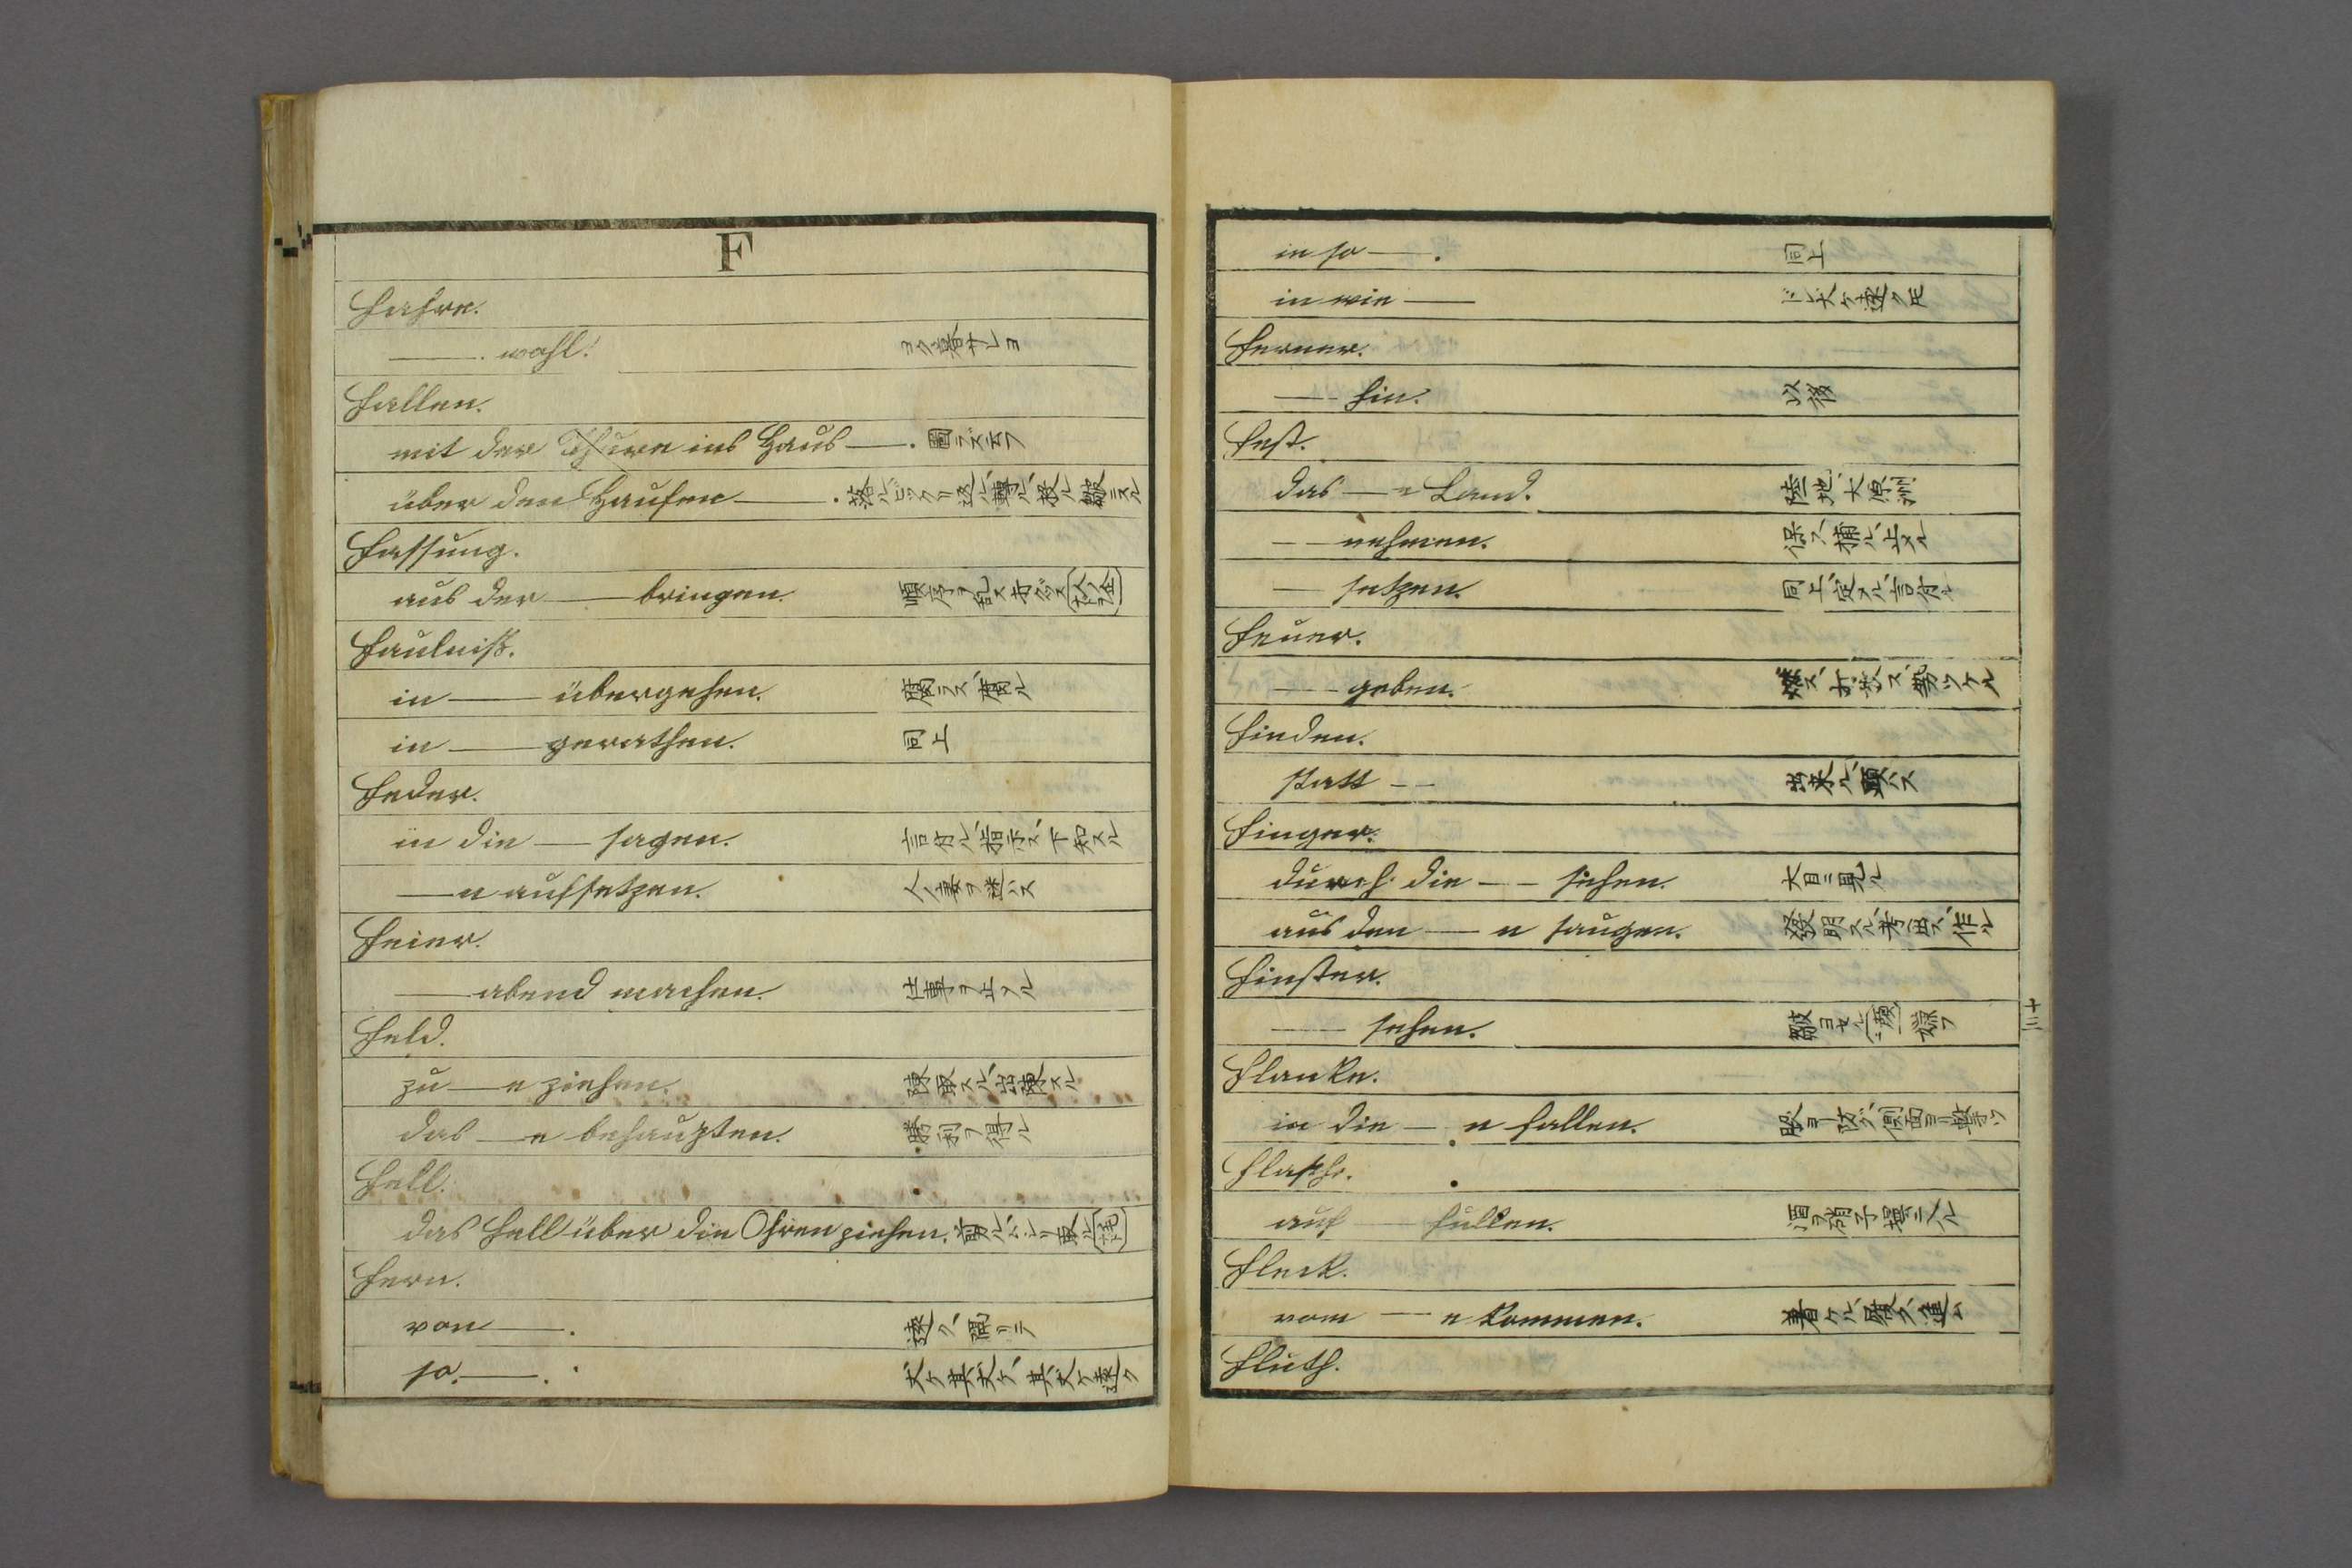 F
Fahre.
—. wohl! ヨク暮サレヨ
Fallen.
mit der Thüre ins Haus —.
über den Haufen —.
Fassung.
aus der — bringen. 順序ヲ乱ス
Faulniß.
in — übergehen. 腐ラス、腐ル
in — gerathen. 同上
Feder.
in die — sagen. 言付ル、指示ス、下知スル
—n aufsetzen. 人妻ヲ迷ハス
Feier.
— abend machen. 仕事ヲ止ル
Feld.
zu —e ziehen. 陳取スル、出陳スル
das —e behaupten. 勝利ヲ得ル
Fell.
das Fell über die Ohren ziehen.
Fern.
von —. 遠ク、隔リテ
so. —. 丈ケ其丈ケ、其丈ケ遠ク
in so —. 同上
in wie — ドレ丈ケ遠クモ
Ferner.
— hin. 以後
Fest.
das —e Land. 陸地、大原洲
— nehmen. 保ツ、捕ル、止メル
— setzen. 同上、定メル、言付ル
Feuer.
— geben.
Finden.
statt — 出来ル、顕ハス
Finger.
durch die — sehen. 大目ニ見ル
aus den —n saugen. 發明スル、考出ス、作ル
Finster.
— sehen.
十三
Flanke.
in die —n fallen.
Flasche.
auf — füllen. 酒ヲ硝子壜ニ入ル
Fleck.
vom —e kommen.
Fluth.